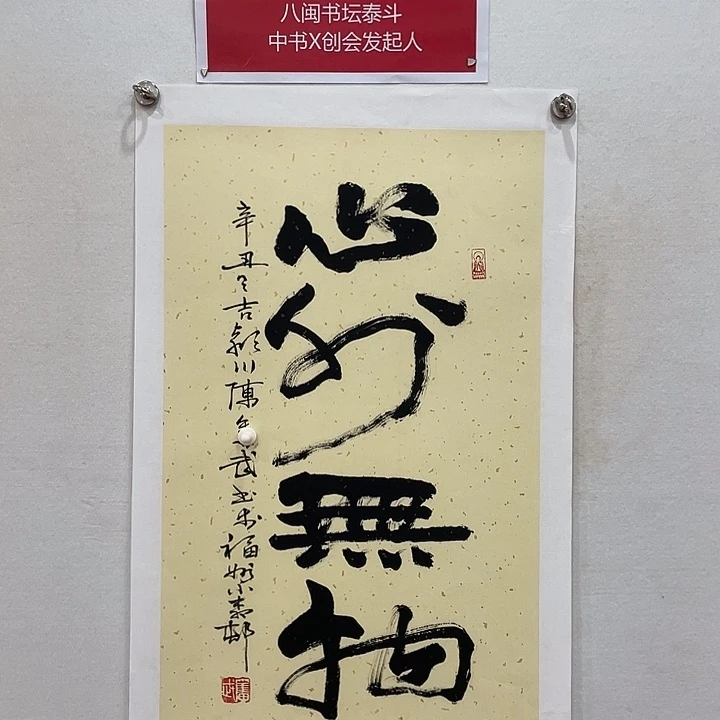 八闽书坛泰斗
中书X创会发起人
心外無物
辛丑之吉潁川陳 武书於福州小桃邨